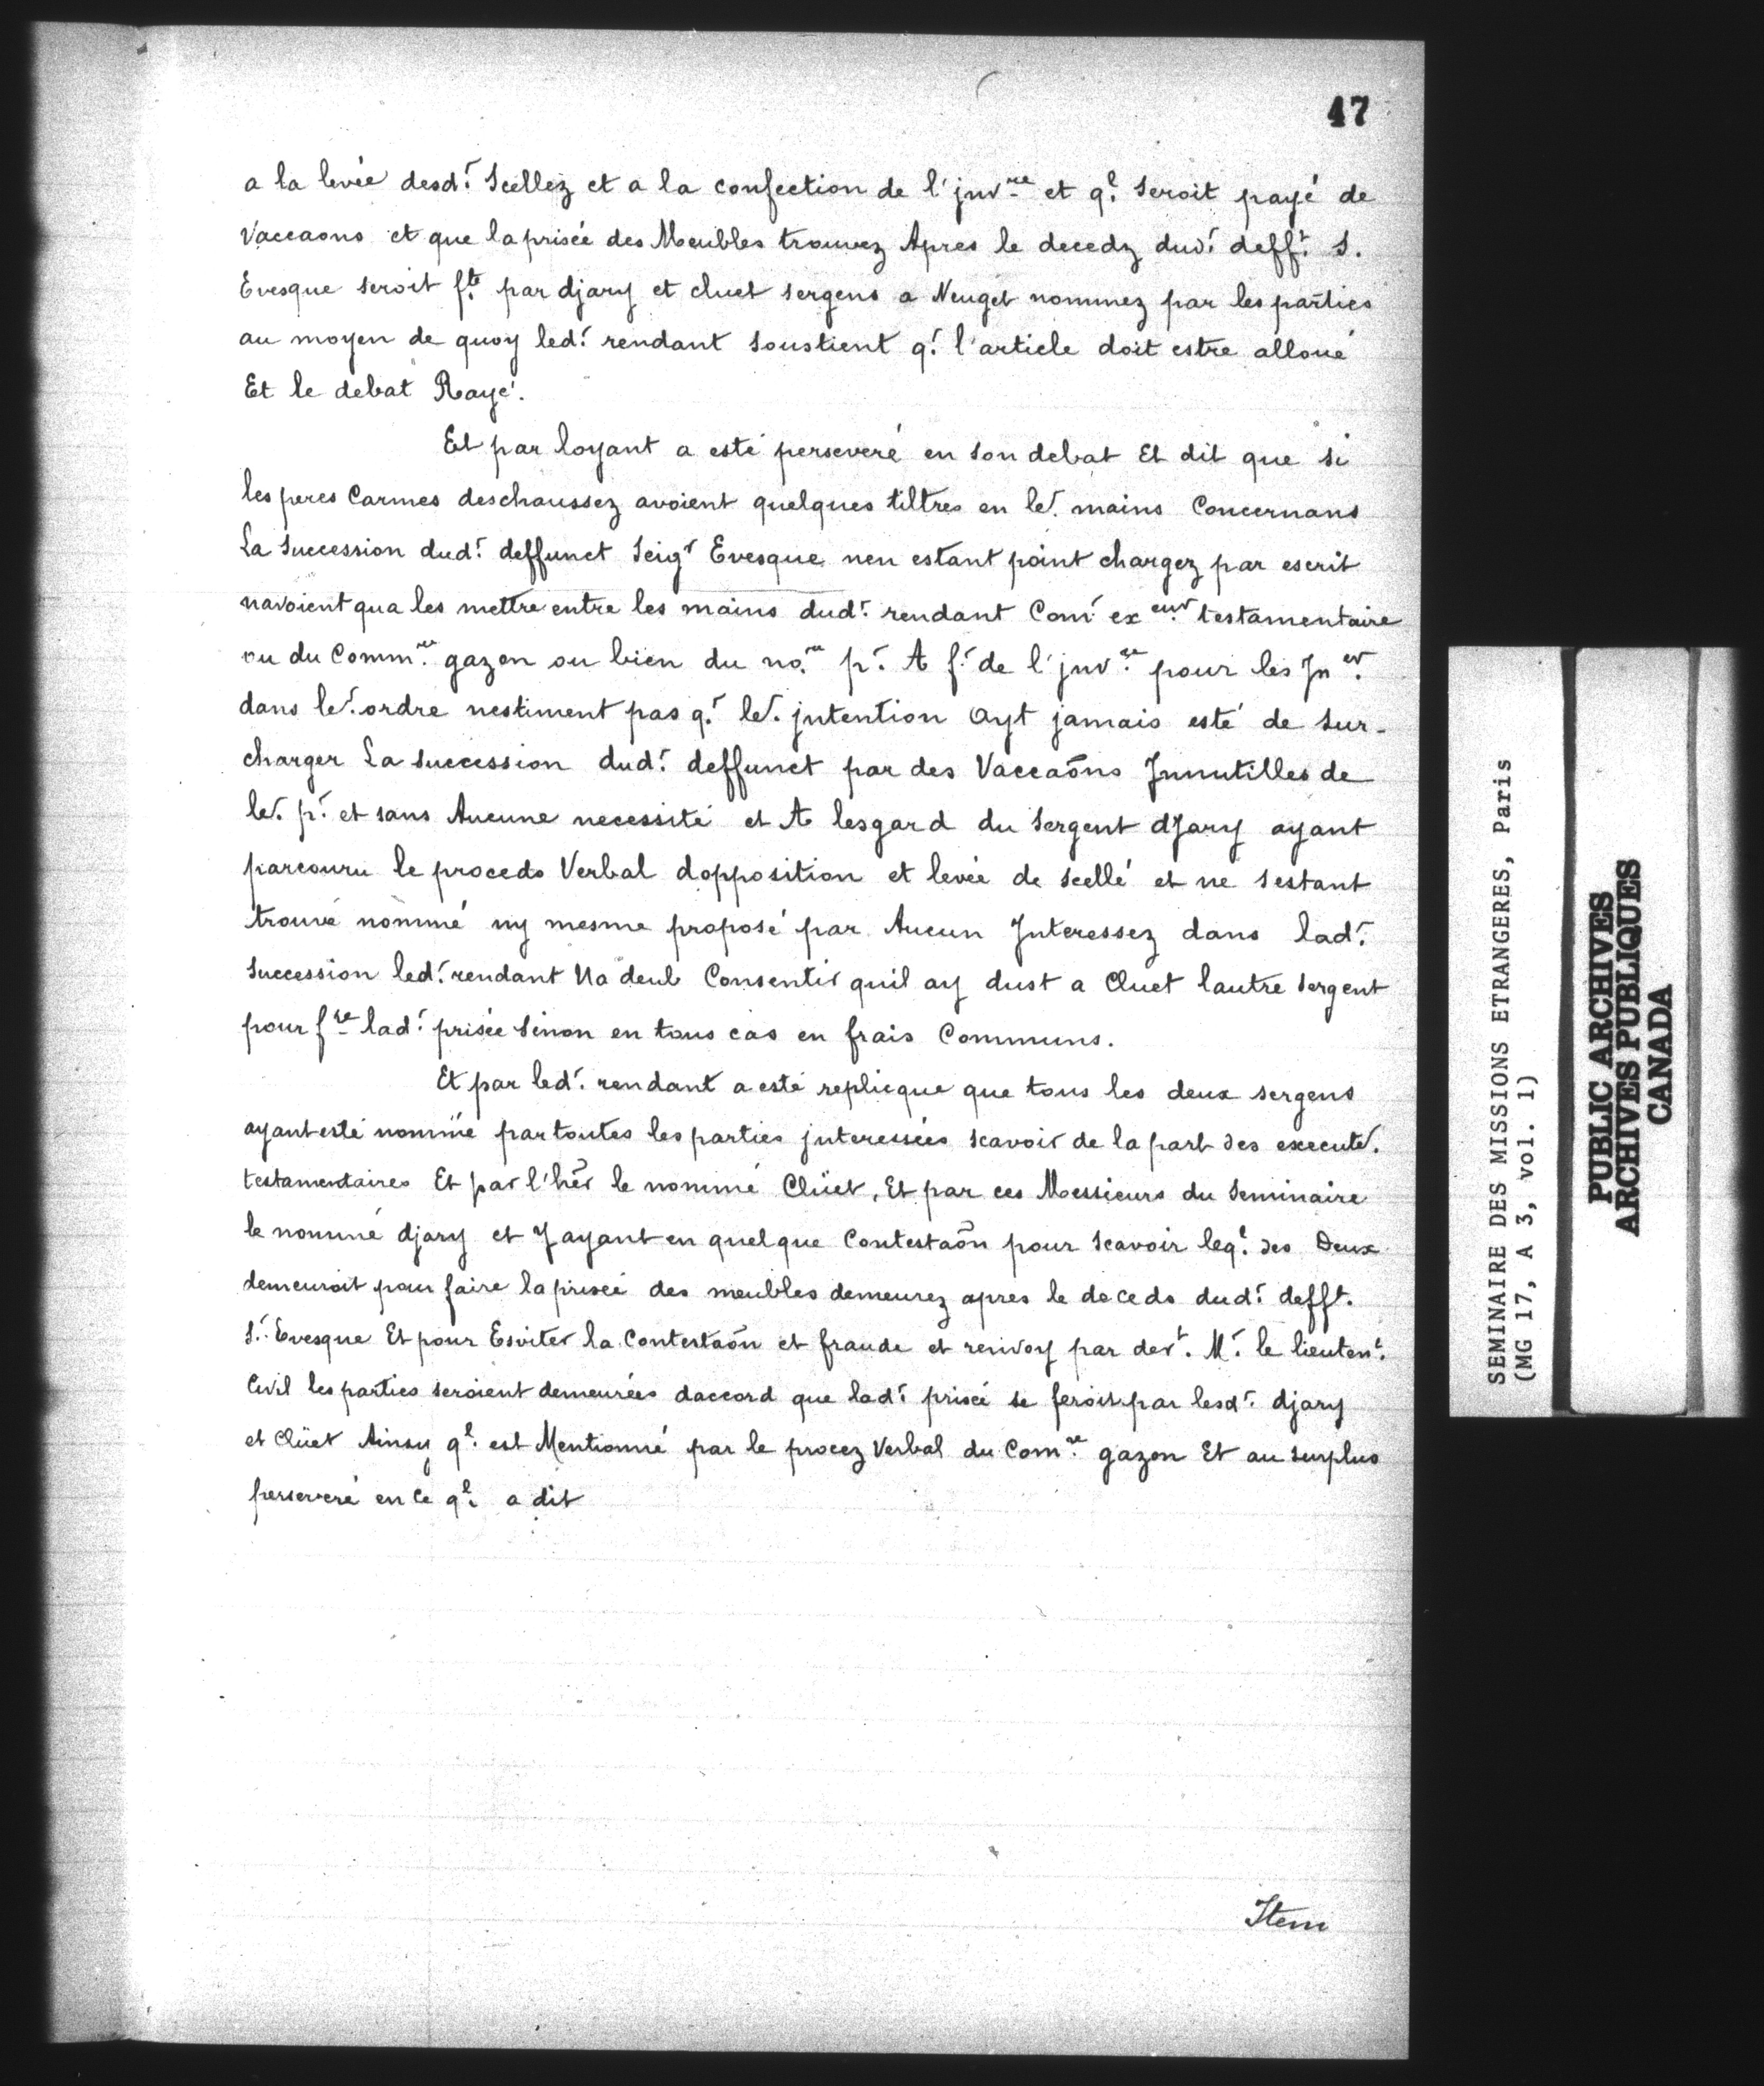 47
a la levée desd.r Scellez et a la confection de l'jnv.re et q.l seroit payé de
Vaccaons et que la prisée des Meubles trouvez Apres le decedz dud.r deff.t S.
Evesque seroit f.te par djary et cluet sergens a Neuget nommez par les parties
au moyen de quoy led.r rendant soustient q.r l'article doit estre alloué
Et le debat Rayé.
Et par loyant a esté perseveré en son debat Et dit que si
les peres Carmes deschaussez avoient quelques tiltres en le.r mains Concernans
La Succession dud.r deffunct Seig.r Evesque nen estant point chargez par escrit
navoient qua les mettre entre les mains dud.r rendant Com.e ex.eur testamentaire
ou du Comm.re gazon ou bien du no.re p.r A f.r de l'jnv.re pour les Jn.er
dans le.r ordre nestiment pas q.r le.r jntention Ayt jamais esté de sur-
charger La succession dud.r deffunct par des Vaccaõns Jnnutilles de
le.r p.r et sans Aucune necessité et A lesgard du Sergent dJary ayant
parcouru le proceds Verbal dopposition et levée de scellé et ne sestant
trouvé nommé ny mesme proposé par Aucun Jnteressez dans lad.r
Succession led.r rendant Na deub Consentir quil ay dust a Cluet lautre sergent
pour f.re lad.r prisée Sinon en tous cas en frais Communs.
Et par led.r rendant a esté replicque que tous les deux sergens
ayant esté nommé par toutes les parties jnteressées scavoir de la part des execute.r
testamentaires Et par l'her le nommé Clüet, Et par ces Messieurs du Seminaire
le nommé djary et Jayant eu quelque Contestaõn pour scavoir leq.l des Deux
demeuroit pour faire la prisée des meubles demeurez apres le deceds dud.r defft.
S.r Evesque Et pour Esviter la Contestaõn et fraude et renvoy par der.t M.r le lieuten.t
Civil les parties seroient demeurées daccord que lad.r prisée se feroit par lesd.r djary
et Clüet Ainsy q.l est Mentionné par le procez Verbal du Com.re gazon Et au surplus
perseveré en Ce q.l a dit
Item
SEMINAIRE DES MISSIONS ETRANGERES, Paris
(MG 17, A 3, vol. 1)
PUBLIC ARCHIVES
ARCHIVES PUBLIQUES
CANADA